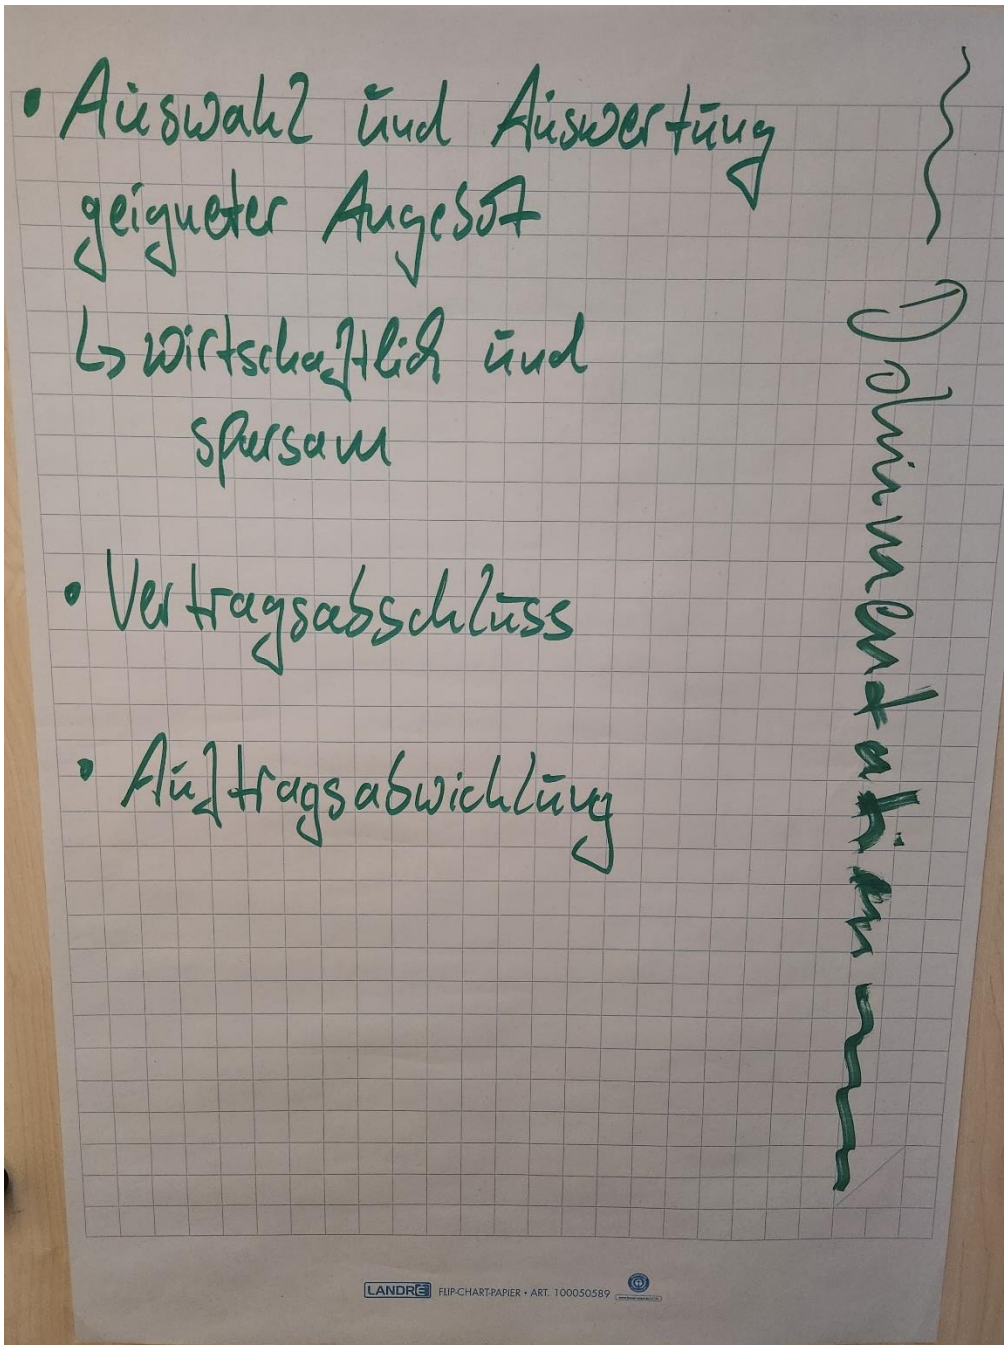 • Auswahl und Auswertung
geeigneter Angebot
↳ wirtschaftlich und
sparsam
• Vertragsabschluss
• Auftragsabwicklung
Dokumentation
LANDRÉ FLIP-CHART-PAPIER • ART. 100050589